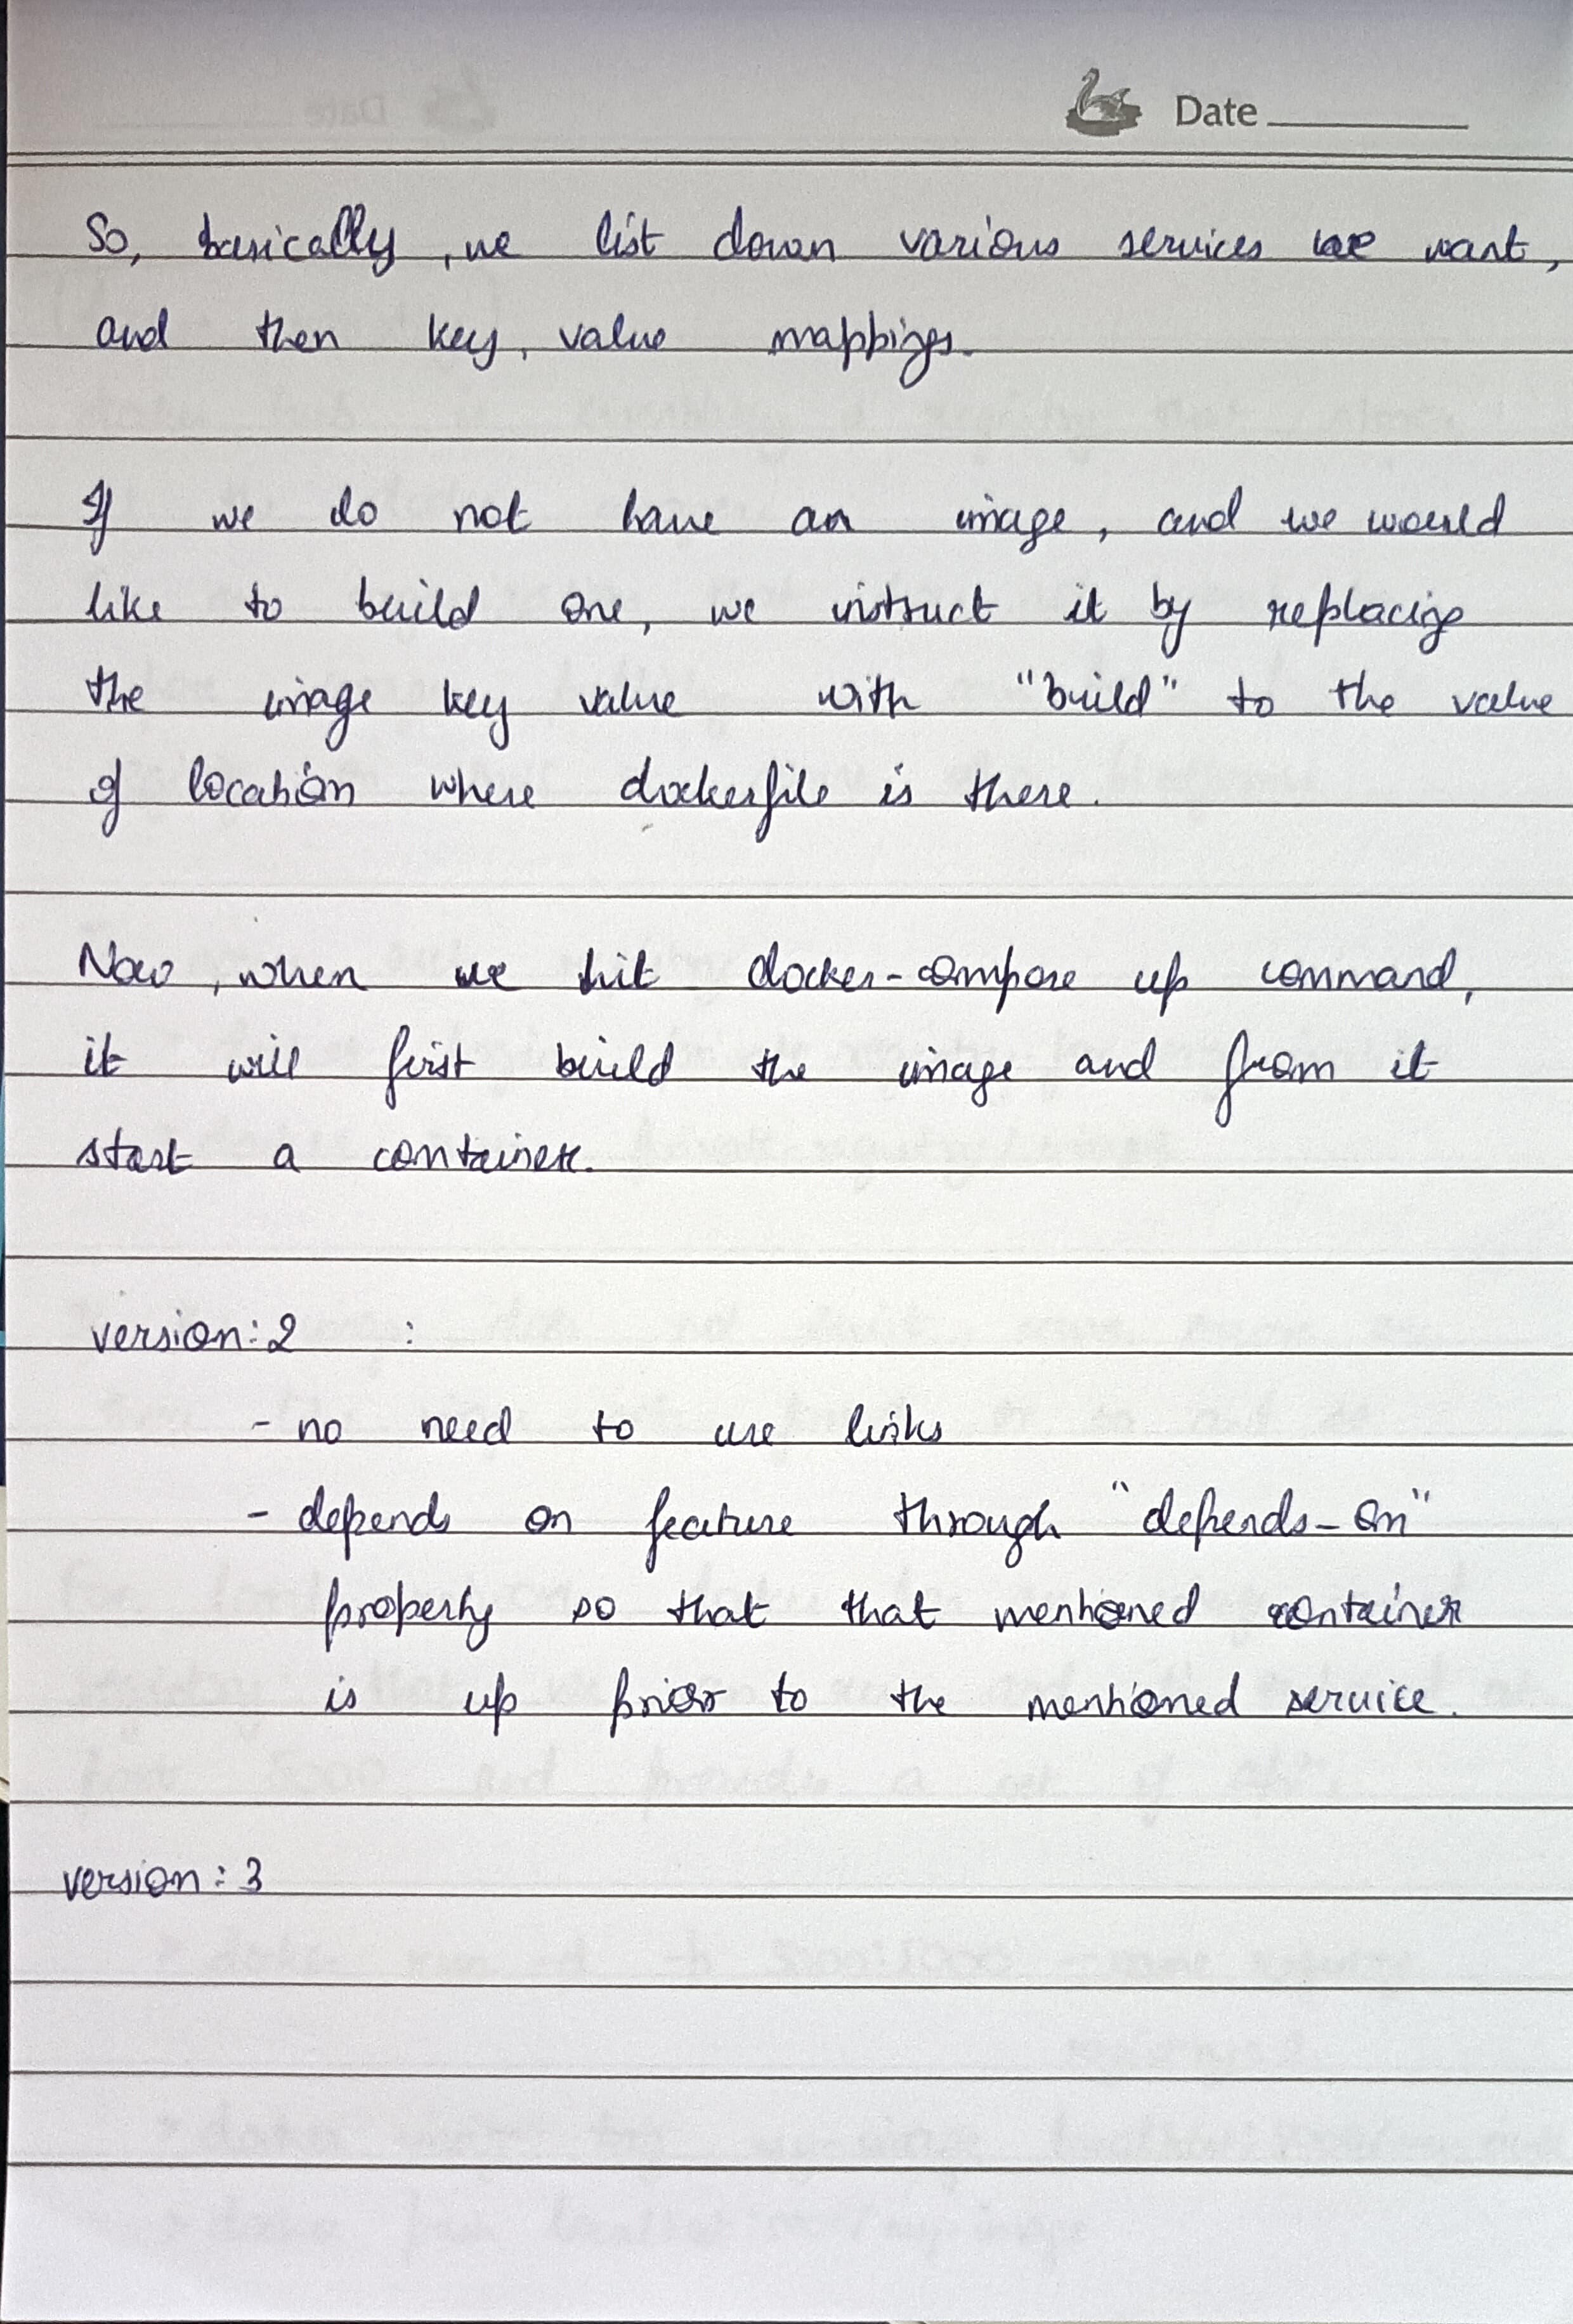 Date
So, basically, we list down various services we want,
and then key, value mappings.
If we do not have an image, and we would
like to build one, we instruct it by replacing
the image key value with "build" to the value
of location where dockerfile is there.
Now, when we hit docker-compose up command,
it will first build the image and from it
start a container.
version: 2 :
- no need to use links
- depends on feature through "depends-on"
property so that that mentioned container
is up prior to the mentioned service.
version: 3